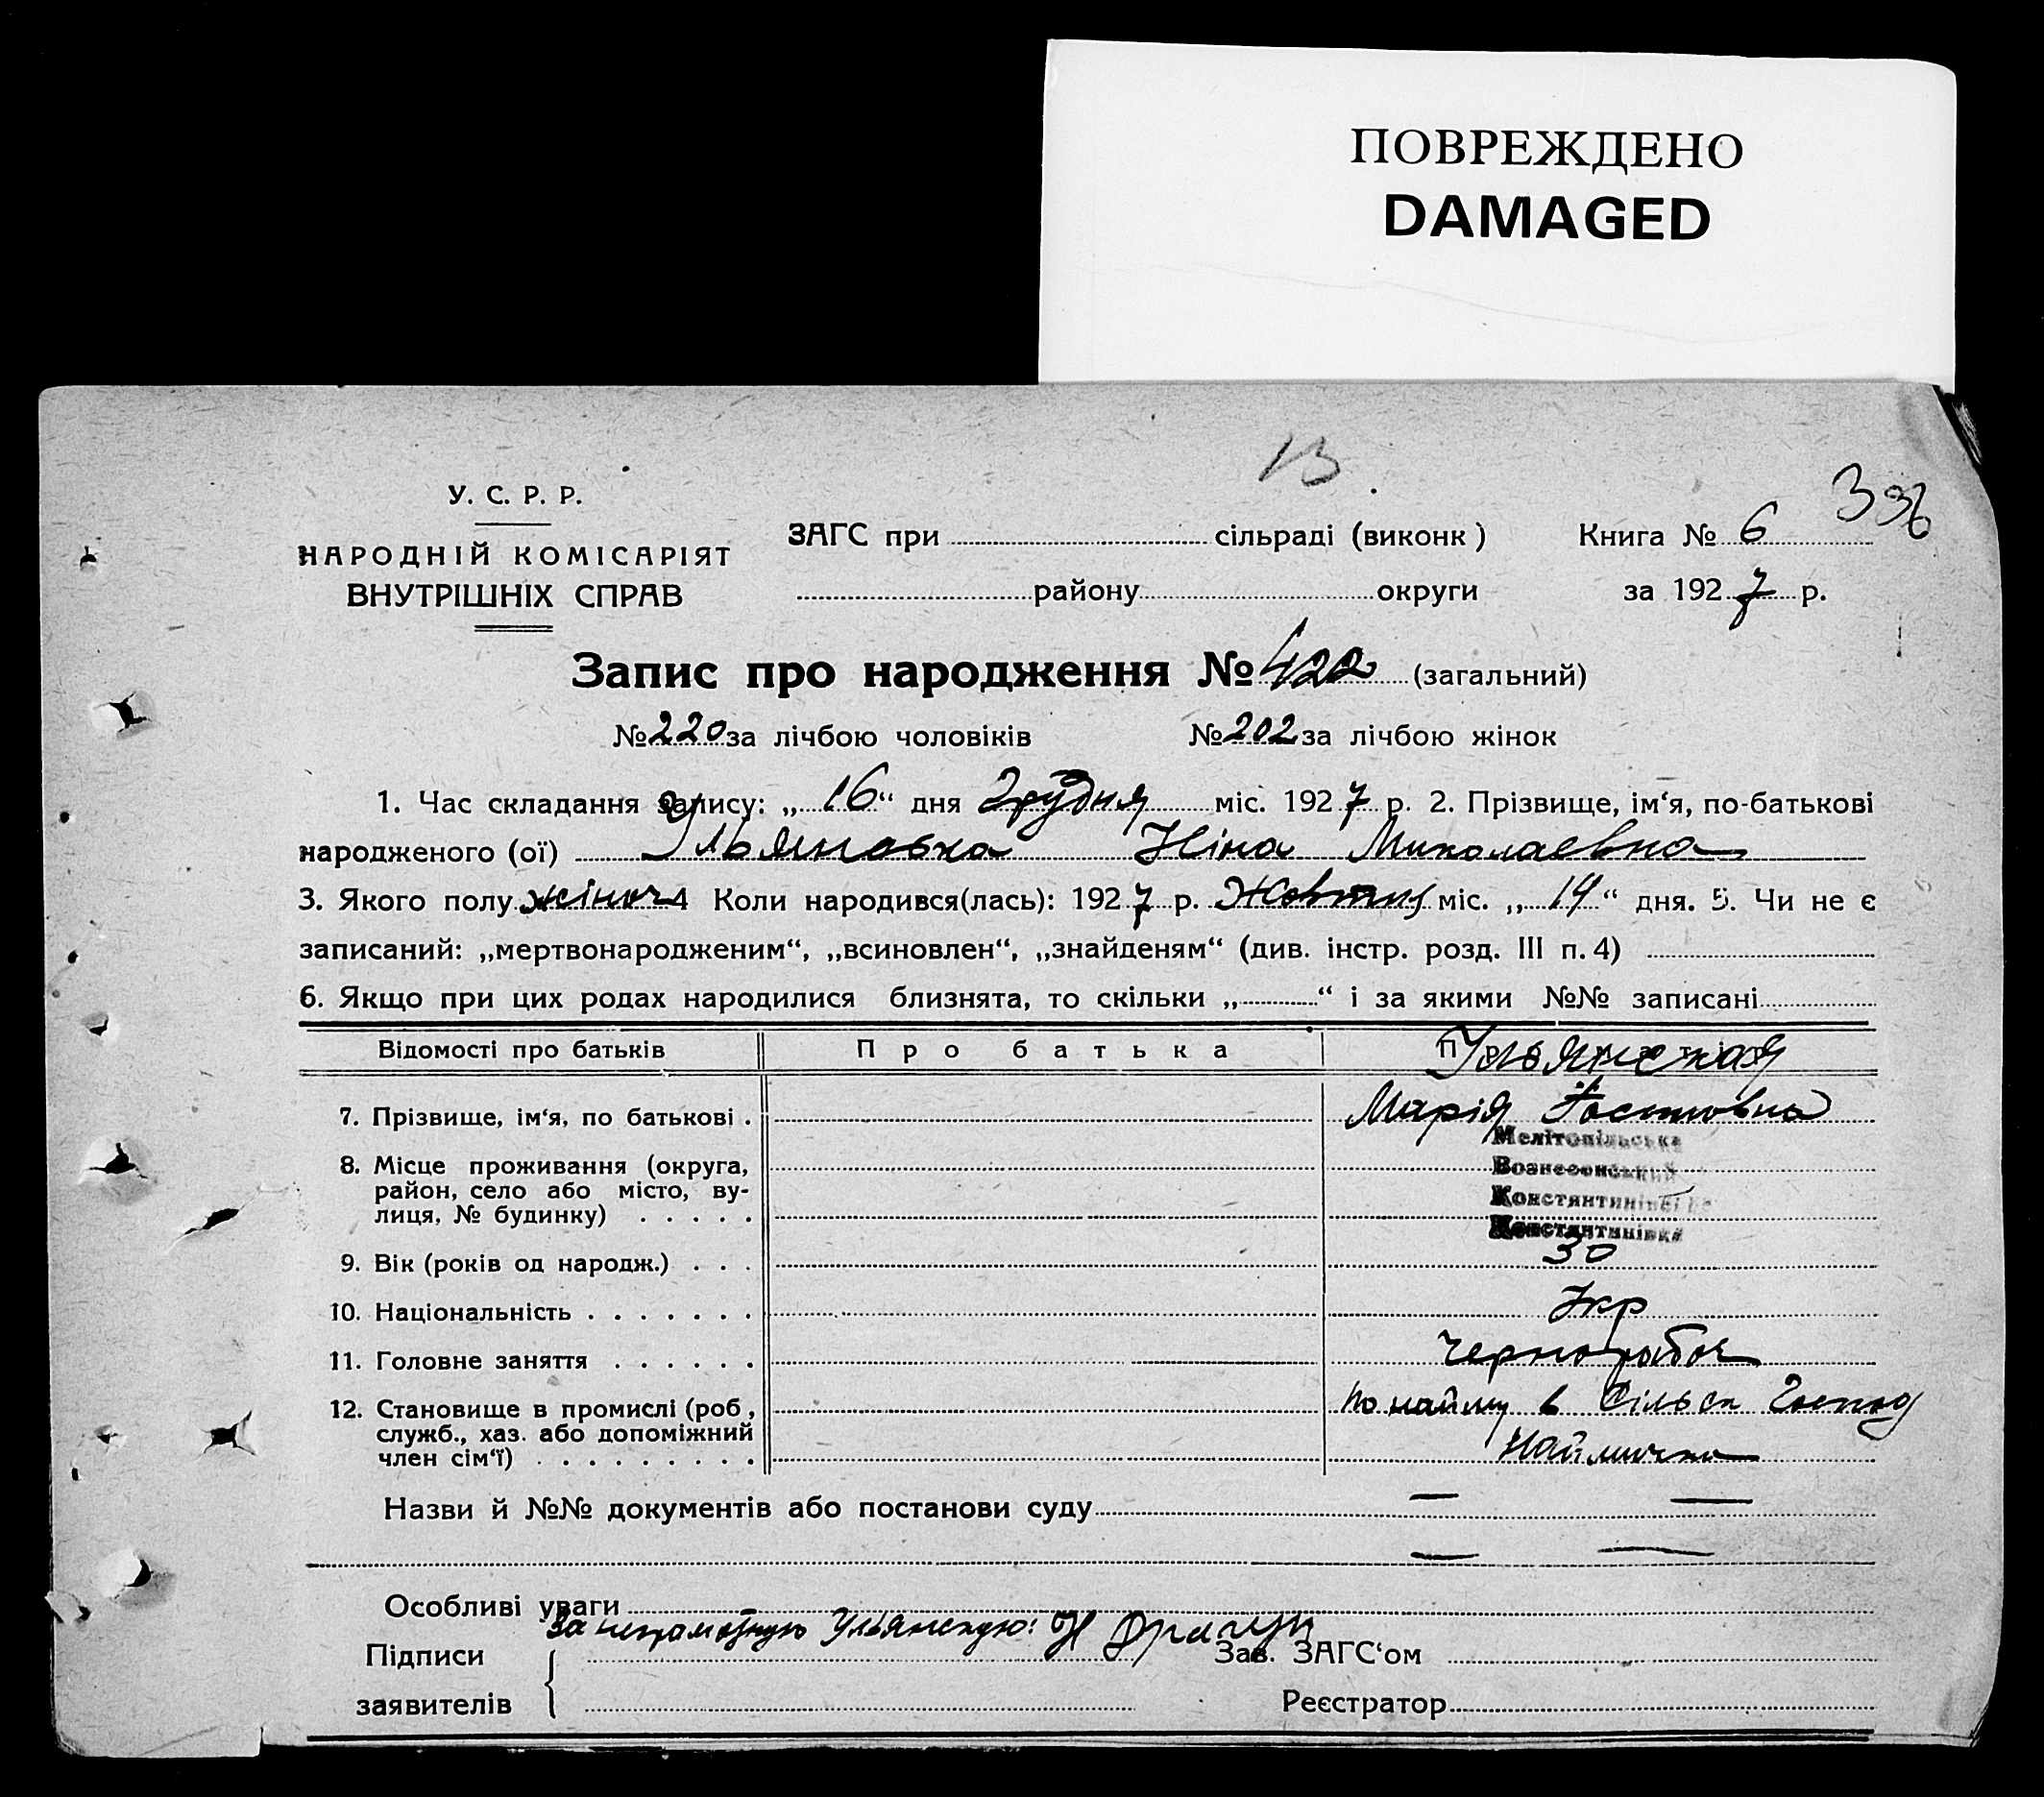 ПОВРЕЖДЕНО
DAMAGED
13
336
У. С. Р. Р.
НАРОДНІЙ КОМІСАРІЯТ
ВНУТРІШНІХ СПРАВ
ЗАГС при сільраді (виконк) Книга № 6
району округи за 1927 р.
Запис про народження № 422 (загальний)
№ 220 за лічбою чоловіків № 202 за лічбою жінок
1. Час складання запису: „16“ дня Грудня міс. 1927 р. 2. Прізвище, ім‘я, по-батькові
народженого (ої) Ульяновка Ніна Миколаевна
3. Якого полу жіноч 4 Коли народився(лась): 1927 р. Жовтня міс. „14“ дня. 5. Чи не є
записаний: „мертвонародженим“, „всиновлен“, „знайденям“ (див. інстр. розд. III п. 4)
6. Якщо при цих родах народилися близнята, то скільки „ “ і за якими №№ записані
Відомості про батьків Про батька
Ульянская
7. Прізвище, ім‘я, по батькові . Марія
8. Місце проживання (округа, район, село або місто, вулиця, № будинку) . . . . .
Мелітопільська
Вознесенський
Константинівка
9. Вік (років од народж.) . . . 30
10. Національність . . . . . . . Укр
11. Головне заняття . . . . . . Чернорабоч
12. Становище в промислі (роб., служб., хаз. або допоміжний член сім‘ї) . . . . . . . . .
По найму в Сільск Господ
Наймичка
Назви й №№ документів або постанови суду — —
— —
Особливі уваги
За неграмотную Ульянскую: Н Драгун
Підписи
заявителів
Зав. ЗАГС‘ом
Реєстратор